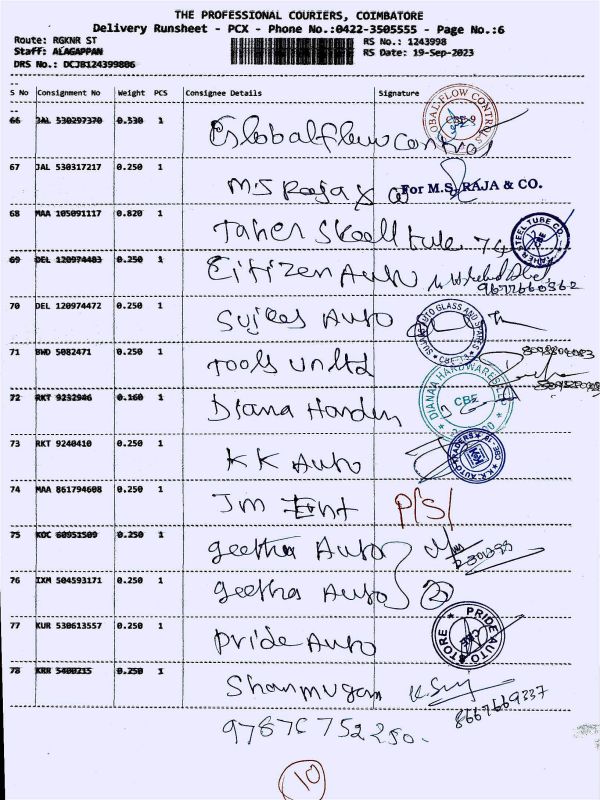 THE PROFESSIONAL COURIERS, COIMBATORE
Delivery Runsheet - PCX - Phone No.:0422-3505555 - Page No.:6
Route: RGKNR ST
RS No.: 1243998
Staff: ALAGAPPAN
RS Date: 19-Sep-2023
DRS No.: DCJB124399806
S No Consignment No Weight PCS Consignee Details Signature
66 JAL 530297370 0.530 1
67 JAL 530317217 0.250 1 M.S Raja & Co For M.S. RAJA & CO.
68 MAA 105091117 0.820 1 Taher
69 DEL 120974403 0.250 1 Citizen Auto
70 DEL 120974472 0.250 1 Auto
71 BWD 5082471 0.250 1 Tools
72 RKT 9232946 0.160 1 Diana DIANAA HARDWARES CBE
73 RKT 9240410 0.250 1 KK Auto
74 MAA 861794608 0.250 1 Jm Ent P/S/
75 KOC 60951509 0.250 1 geetha Auto
76 IXM 504593171 0.250 1 geetha Auto 2
77 KUR 530613557 0.250 1 Pride Auto PRIDE AUTO STORE
78 KRR 5400215 0.250 1 Shanmugam
8667669337
10